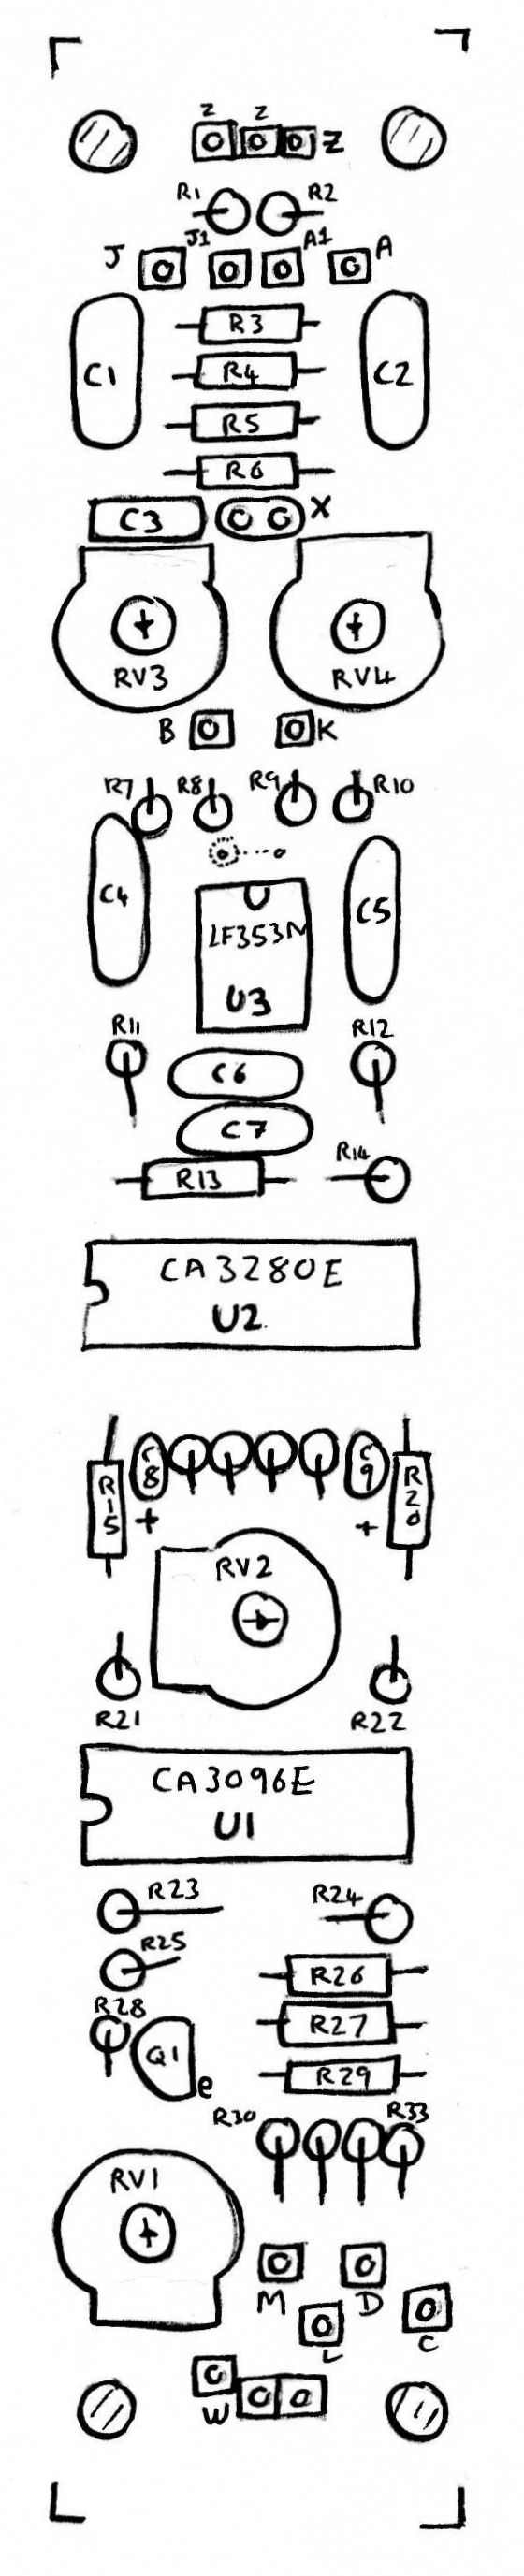 Z Z
Z
R1 R2
J J1 A1 A
R3
C1 R4 C2
R5
R6
C3 X
RV3 RV4
B K
R7 R8 R9 R10
C4 C5
LF353N
U3
R11 R12
C6
C7
R13 R14
CA3280E
U2
C8 C9
R15 R20
+ +
RV2
R21 R22
CA3096E
U1
R23 R24
R25
R26
R28 R27
Q1
e R29
R30 R33
RV1
M D
L C
W